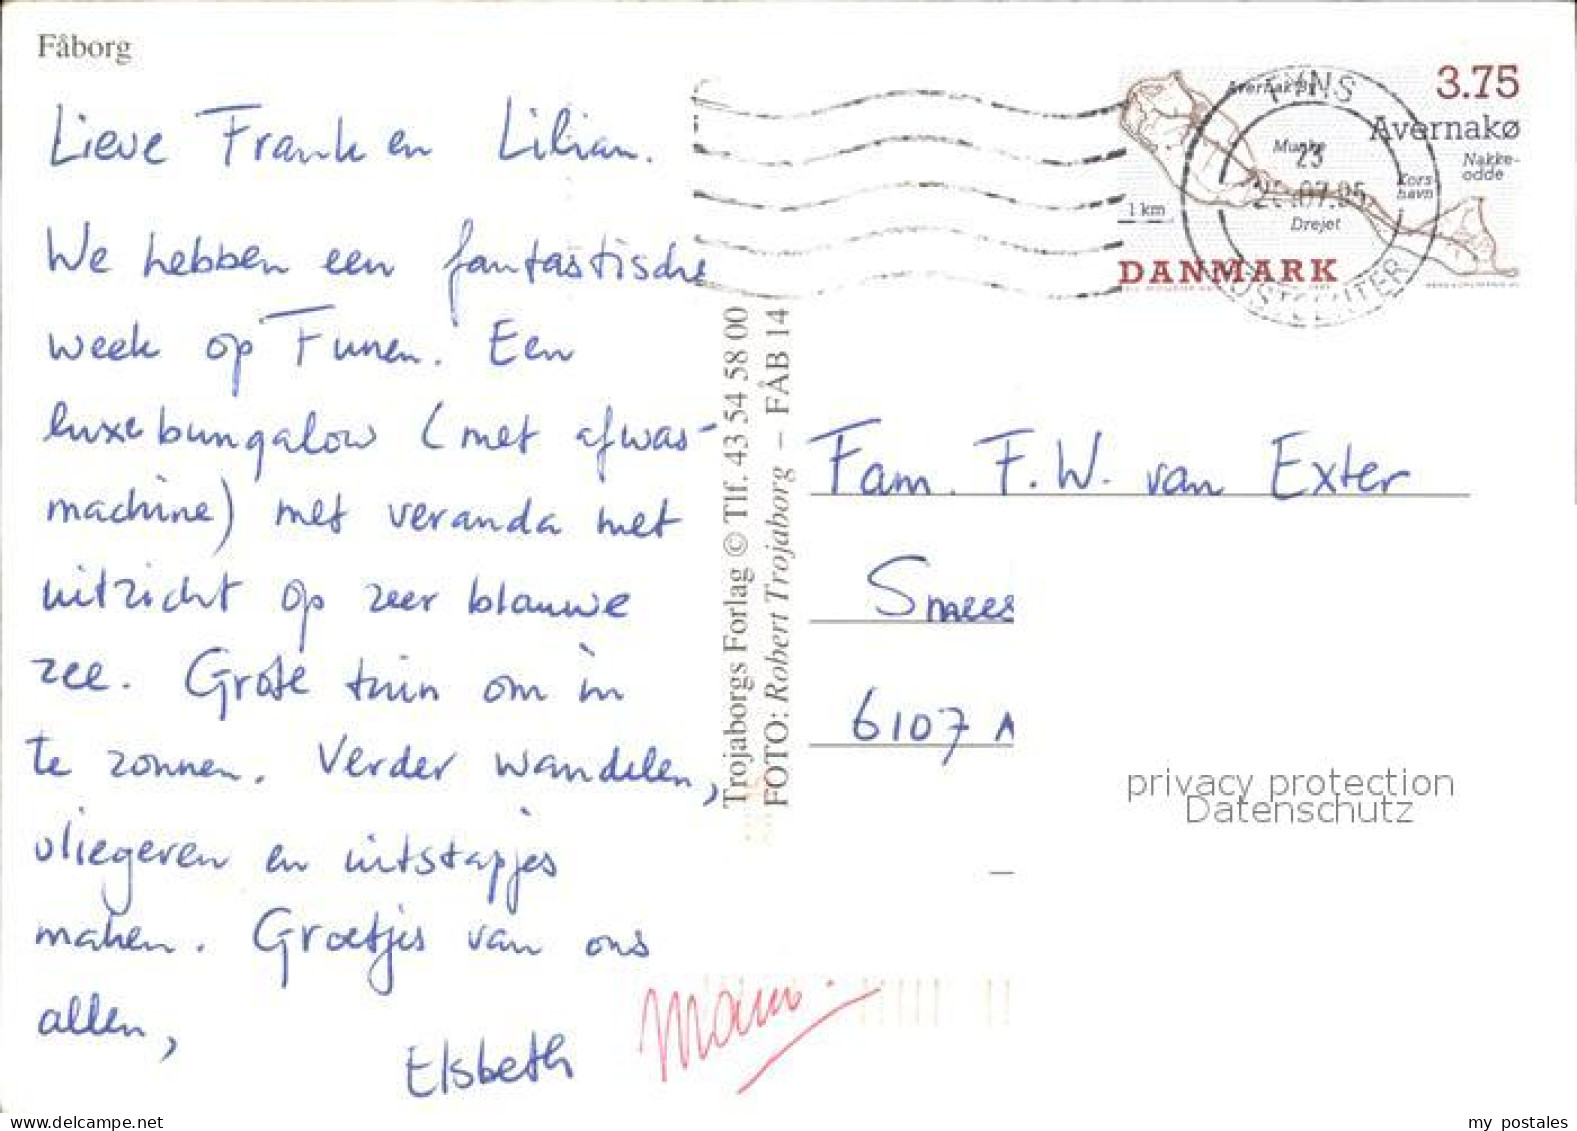 Fåborg
Lieve Frank en Lilian.
We hebben een fantastische
week op Funen. Een
luxe bungalow (met afwas-
machine) met veranda met
uitzicht op zeer blauwe
zee. Grote tuin om in
te zonnen. Verder wandelen,
vliegeren en uitstapjes
maken. Groetjes van ons
allen,
Elsbeth
Trojaborgs Forlag © Tlf. 43 54 58 00
FOTO: Robert Trojaborg – FÅB 14
3.75
Avernakø
Munke
Nakke-
odde
Kors-
havn
1 km
Drejet
DANMARK
FYNS
23
.07.95
POSTCENTER
Fam. F.W. van Exter
Smees
6107 A
privacy protection
Datenschutz
delcampe.net
my postales